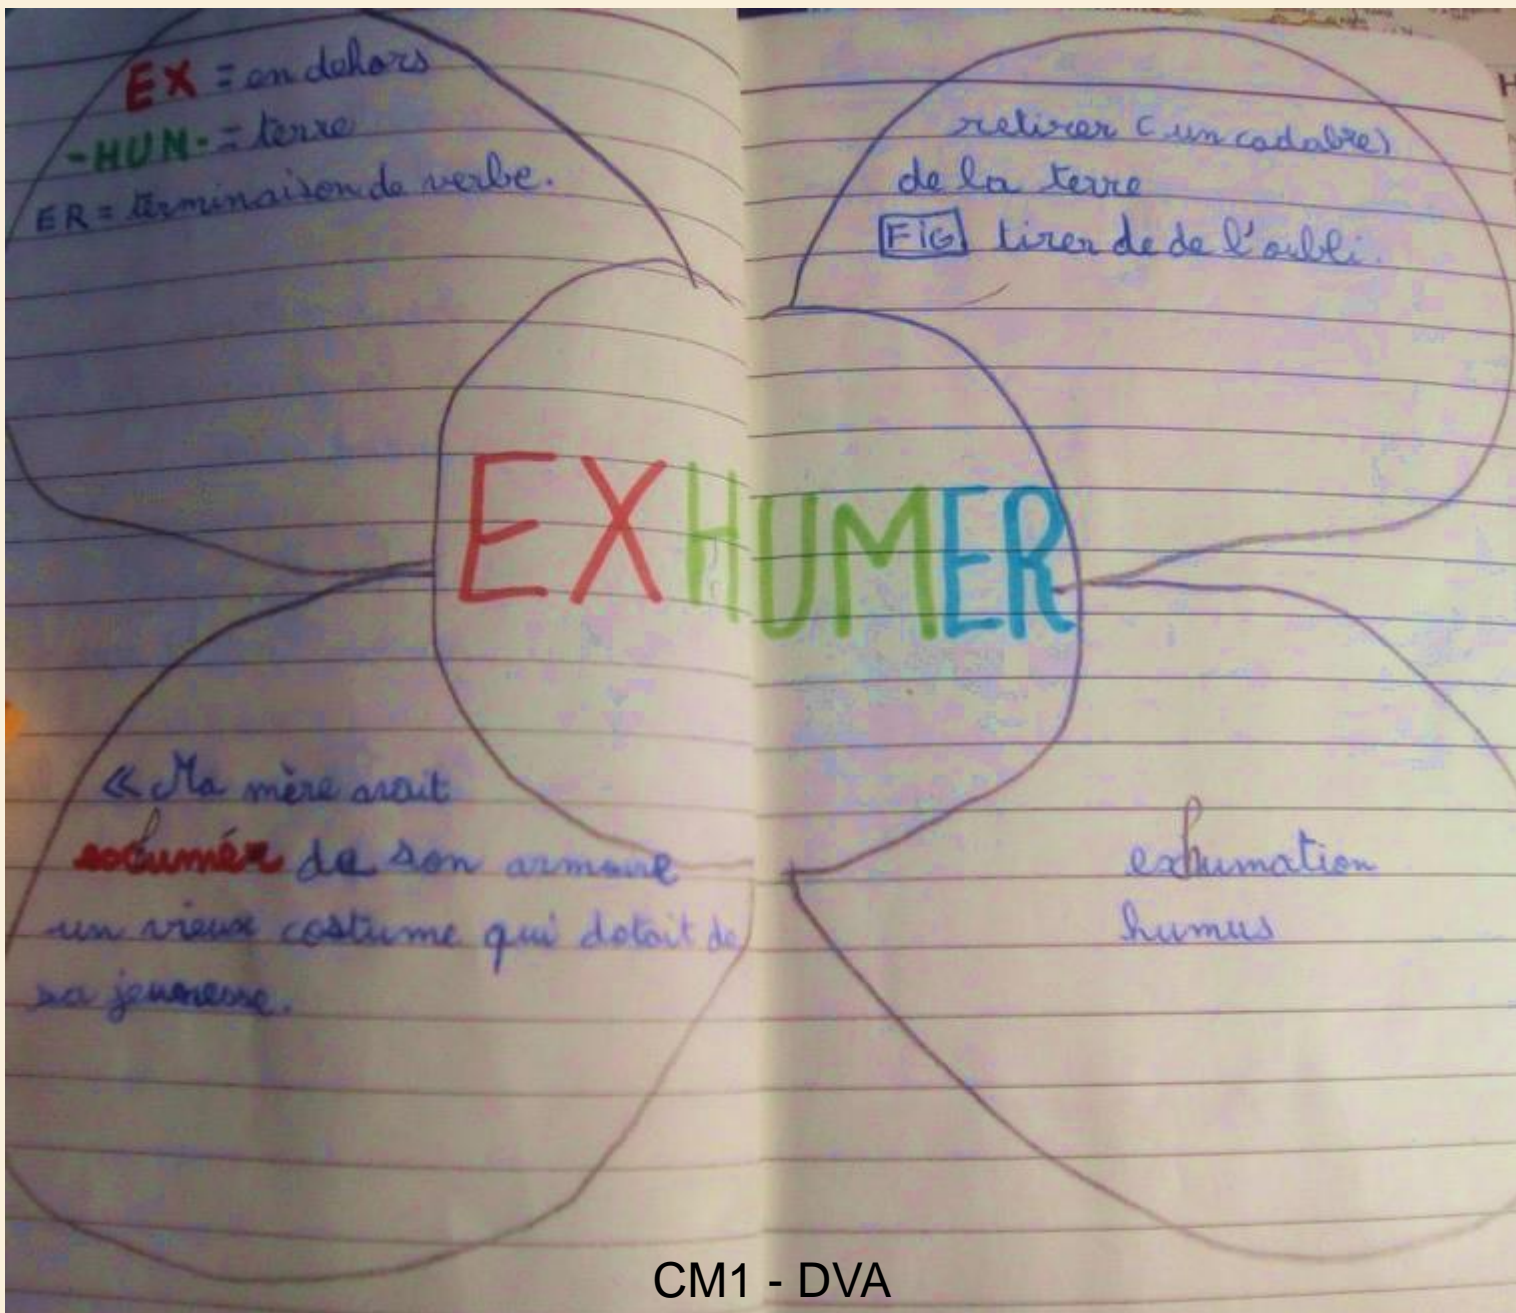 EX = en dehors
-HUM- = terre
ER = terminaison de verbe.
retirer (un cadabre)
de la terre
FIG tirer de de l'oubli.
EXHUMER
« Ma mère avait
exhumér de son armoire
un vieux costume qui datait de
sa jeunesse.
exhumation
humus
CM1 - DVA